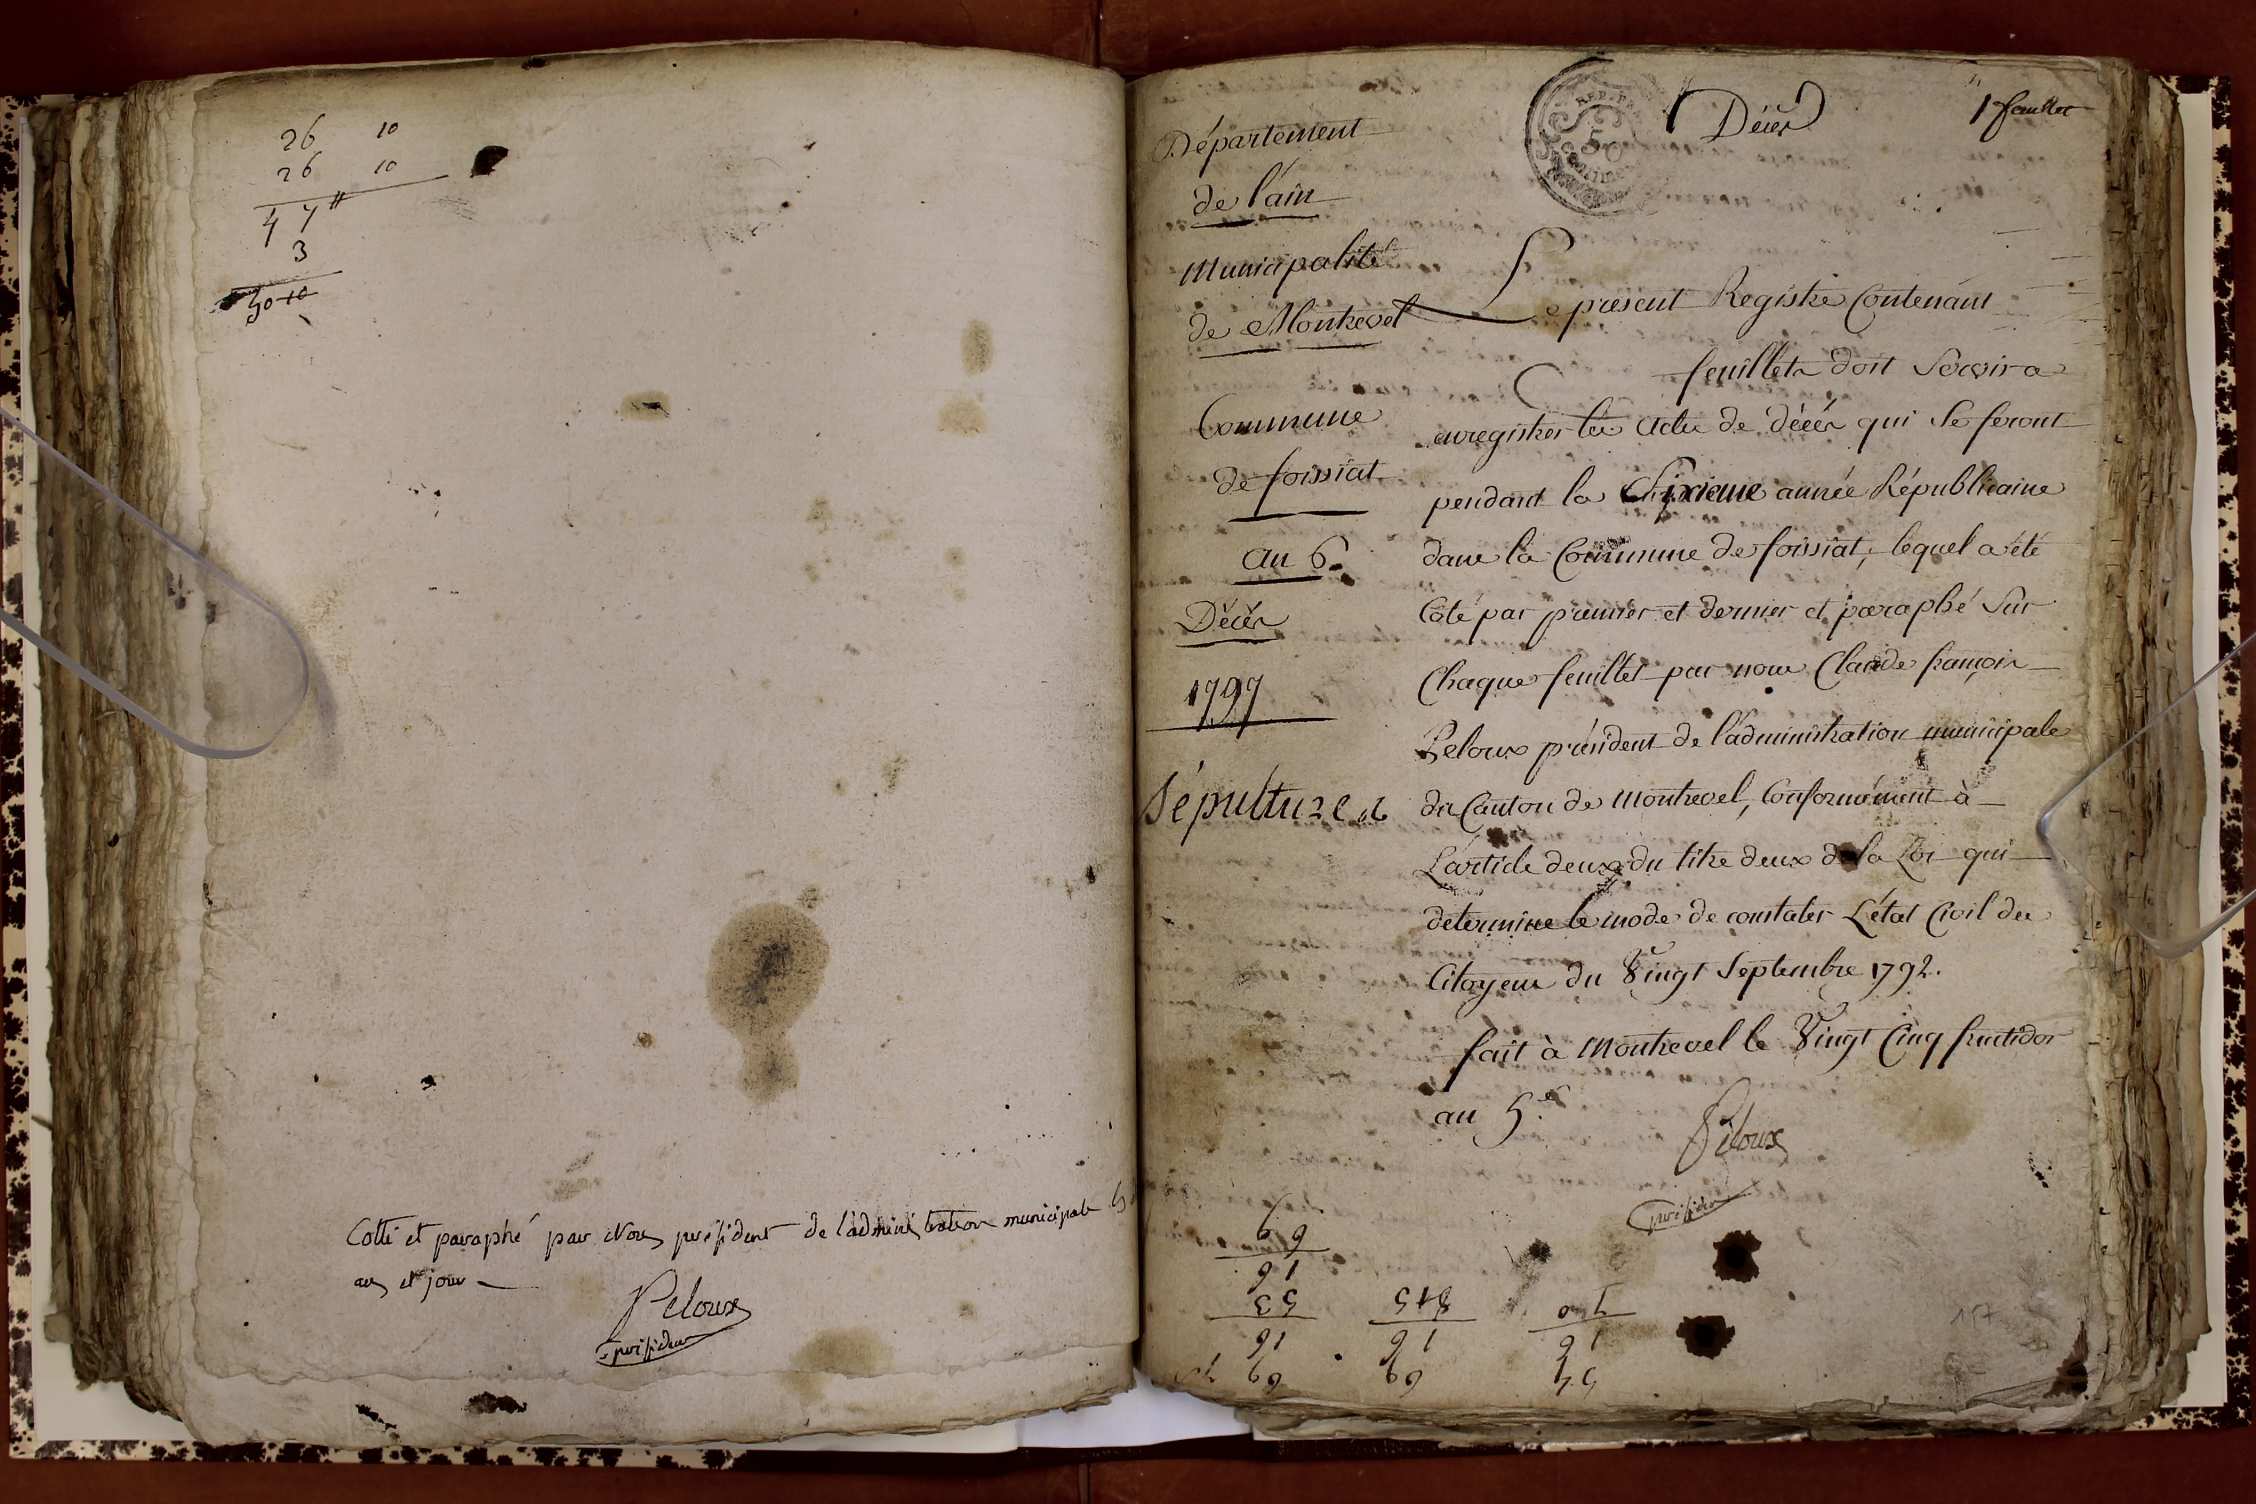 26 10
26 10
47 "
3
50 10
Cotté et paraphé par Nous président de l'administration municipale les
an et jour
Peloux
président
Département
de l'ain
Municipalité
de Montrevel
Commune
de foissiat
an 6.
Décès
1797
Sépulture
REP. FRA
50
Centimes
Décès
1 feuillet
Le présent Registre Contenant
feuillets doit Servir a
enregistrer les actes de décès qui se feront
pendant la Sixieme année Républicaine
dans la Commune de foissiat, lequel a été
Coté par premier et dernier et paraphé Sur
Chaque feuillet par nous Claude françois
Peloux président de l'administration municipale
du Canton de Montrevel, Conformément à
L'article deux du titre deux de la Loi qui
determine le mode de constater L'état Civil des
Citoyens du Vingt Septembre 1792.
fait à Montrevel le Vingt Cinq fructidor
an 5.e
Peloux
président
69
16
53
16
69
845
16
69
70
16
54
157